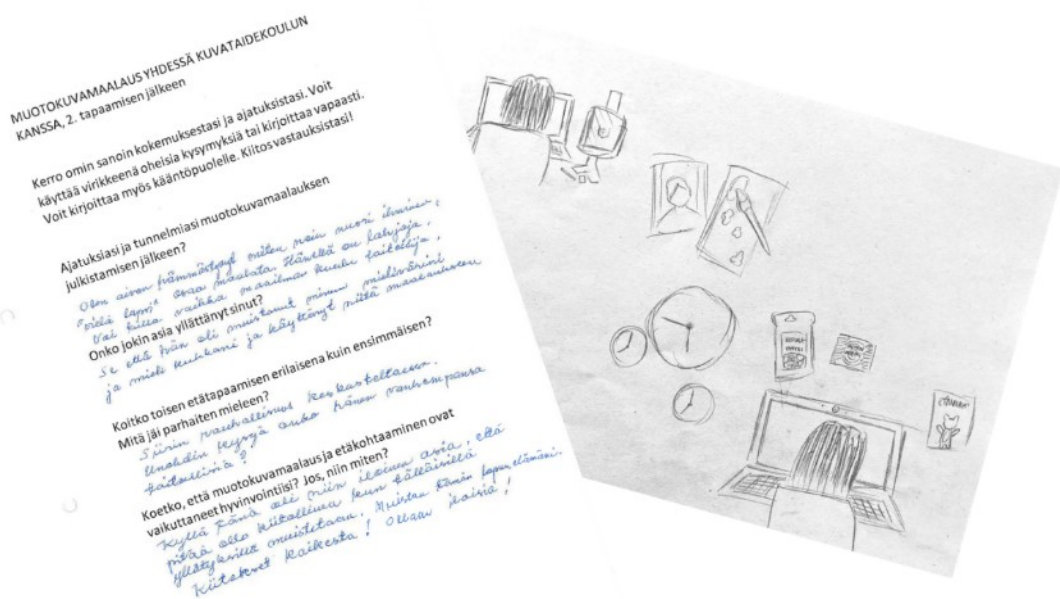 MUOTOKUVAMAALAUS YHDESSÄ KUVATAIDEKOULUN
KANSSA, 2. tapaamisen jälkeen
Kerro omin sanoin kokemuksestasi ja ajatuksistasi. Voit
käyttää virikkeenä oheisia kysymyksiä tai kirjoittaa vapaasti.
Voit kirjoittaa myös kääntöpuolelle. Kiitos vastauksistasi!
Ajatuksiasi ja tunnelmiasi muotokuvamaalauksen
julkistamisen jälkeen?
Olen aivan hämmästynyt miten noin nuori ihminen,
"vielä lapsi" osaa maalata. Hänellä on lahjoja.
Voi tulla vaikka maailman kuulu taiteilija,
Onko jokin asia yllättänyt sinut?
Se että hän oli muistanut minun mielivärini
ja mieli kukkani ja käyttänyt niitä maalaukseen
Koitko toisen etätapaamisen erilaisena kuin ensimmäisen?
Mitä jäi parhaiten mieleen?
Siirin rauhallisuus keskusteltaessa.
Unohdin kysyä onko hänen vanhempansa
taiteellisia?
Koetko, että muotokuvamaalaus ja etäkohtaaminen ovat
vaikuttaneet hyvinvointiisi? Jos, niin miten?
Kyllä tämä oli niin iloinen asia, että
pitää olla kiitollinen kun tällaisilla
yllätyksillä muistetaan. Muistan tämän lopun elämäni.
Kiitokset kaikesta! Ollaan iloisia!